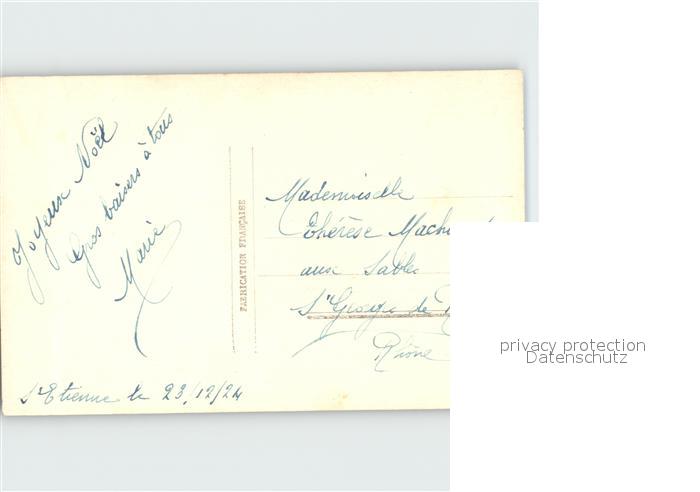 Joyeux Noël
Gros baisers à tous
Marie
St Etienne le 23/12/24
FABRICATION FRANÇAISE
Mademoiselle
Thérèse
aux Sable
St George de
Rhône
privacy protection
Datenschutz